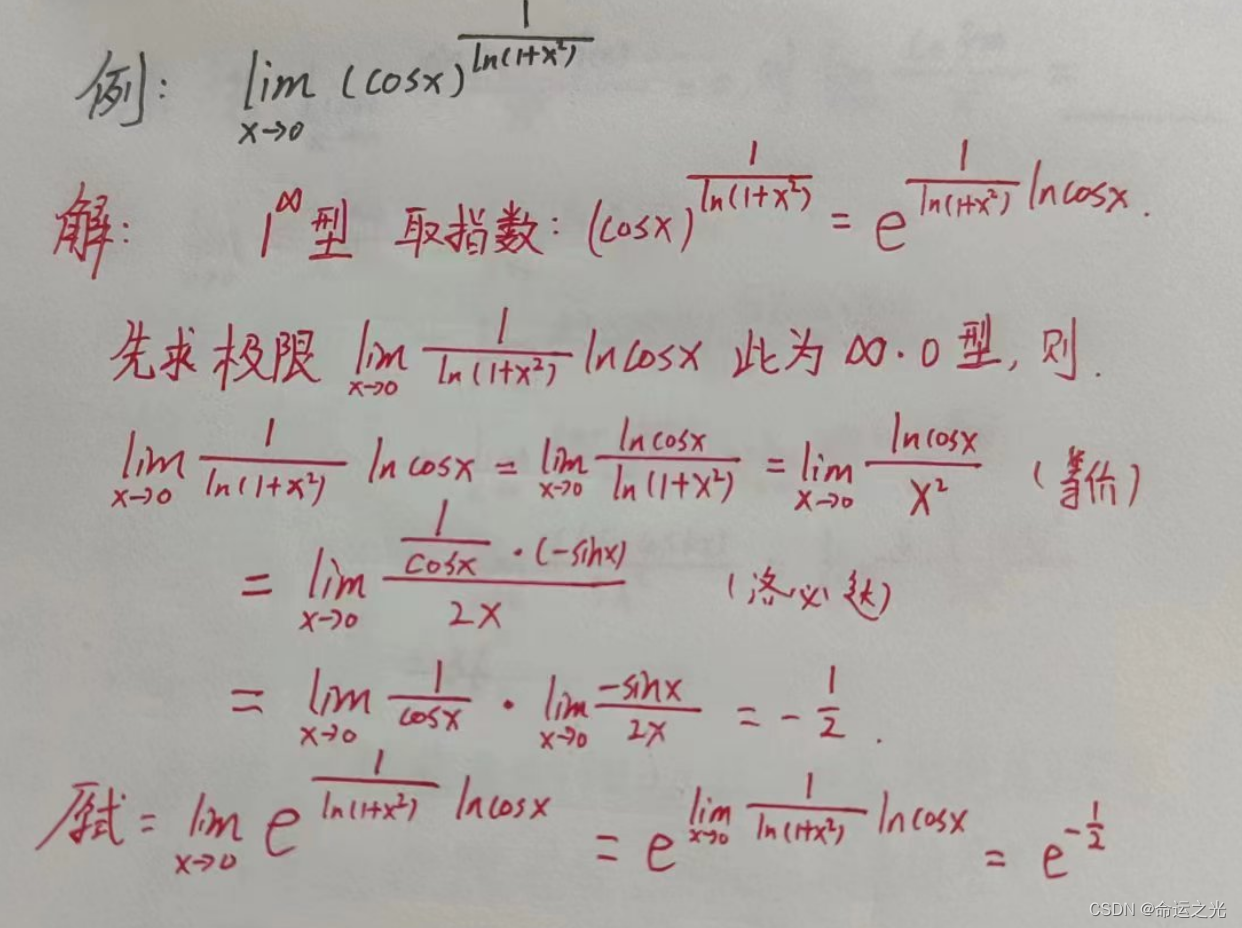 例: lim_{x→0} (cosx)^{\frac{1}{ln(1+x²)}}
解: 1^∞型 取指数: (cosx)^{\frac{1}{ln(1+x²)}} = e^{\frac{1}{ln(1+x²)} lncosx}.
先求极限 lim_{x→0} \frac{1}{ln(1+x²)} lncosx 此为 ∞·0 型, 则.
lim_{x→0} \frac{1}{ln(1+x²)} lncosx = lim_{x→0} \frac{lncosx}{ln(1+x²)} = lim_{x→0} \frac{lncosx}{x²} (等价)
= lim_{x→0} \frac{\frac{1}{cosx}·(-sinx)}{2x} (洛必达)
= lim_{x→0} \frac{1}{cosx} · lim_{x→0} \frac{-sinx}{2x} = -\frac{1}{2}.
原式 = lim_{x→0} e^{\frac{1}{ln(1+x²)} lncosx} = e^{lim_{x→0} \frac{1}{ln(1+x²)} lncosx} = e^{-\frac{1}{2}}
CSDN @命运之光